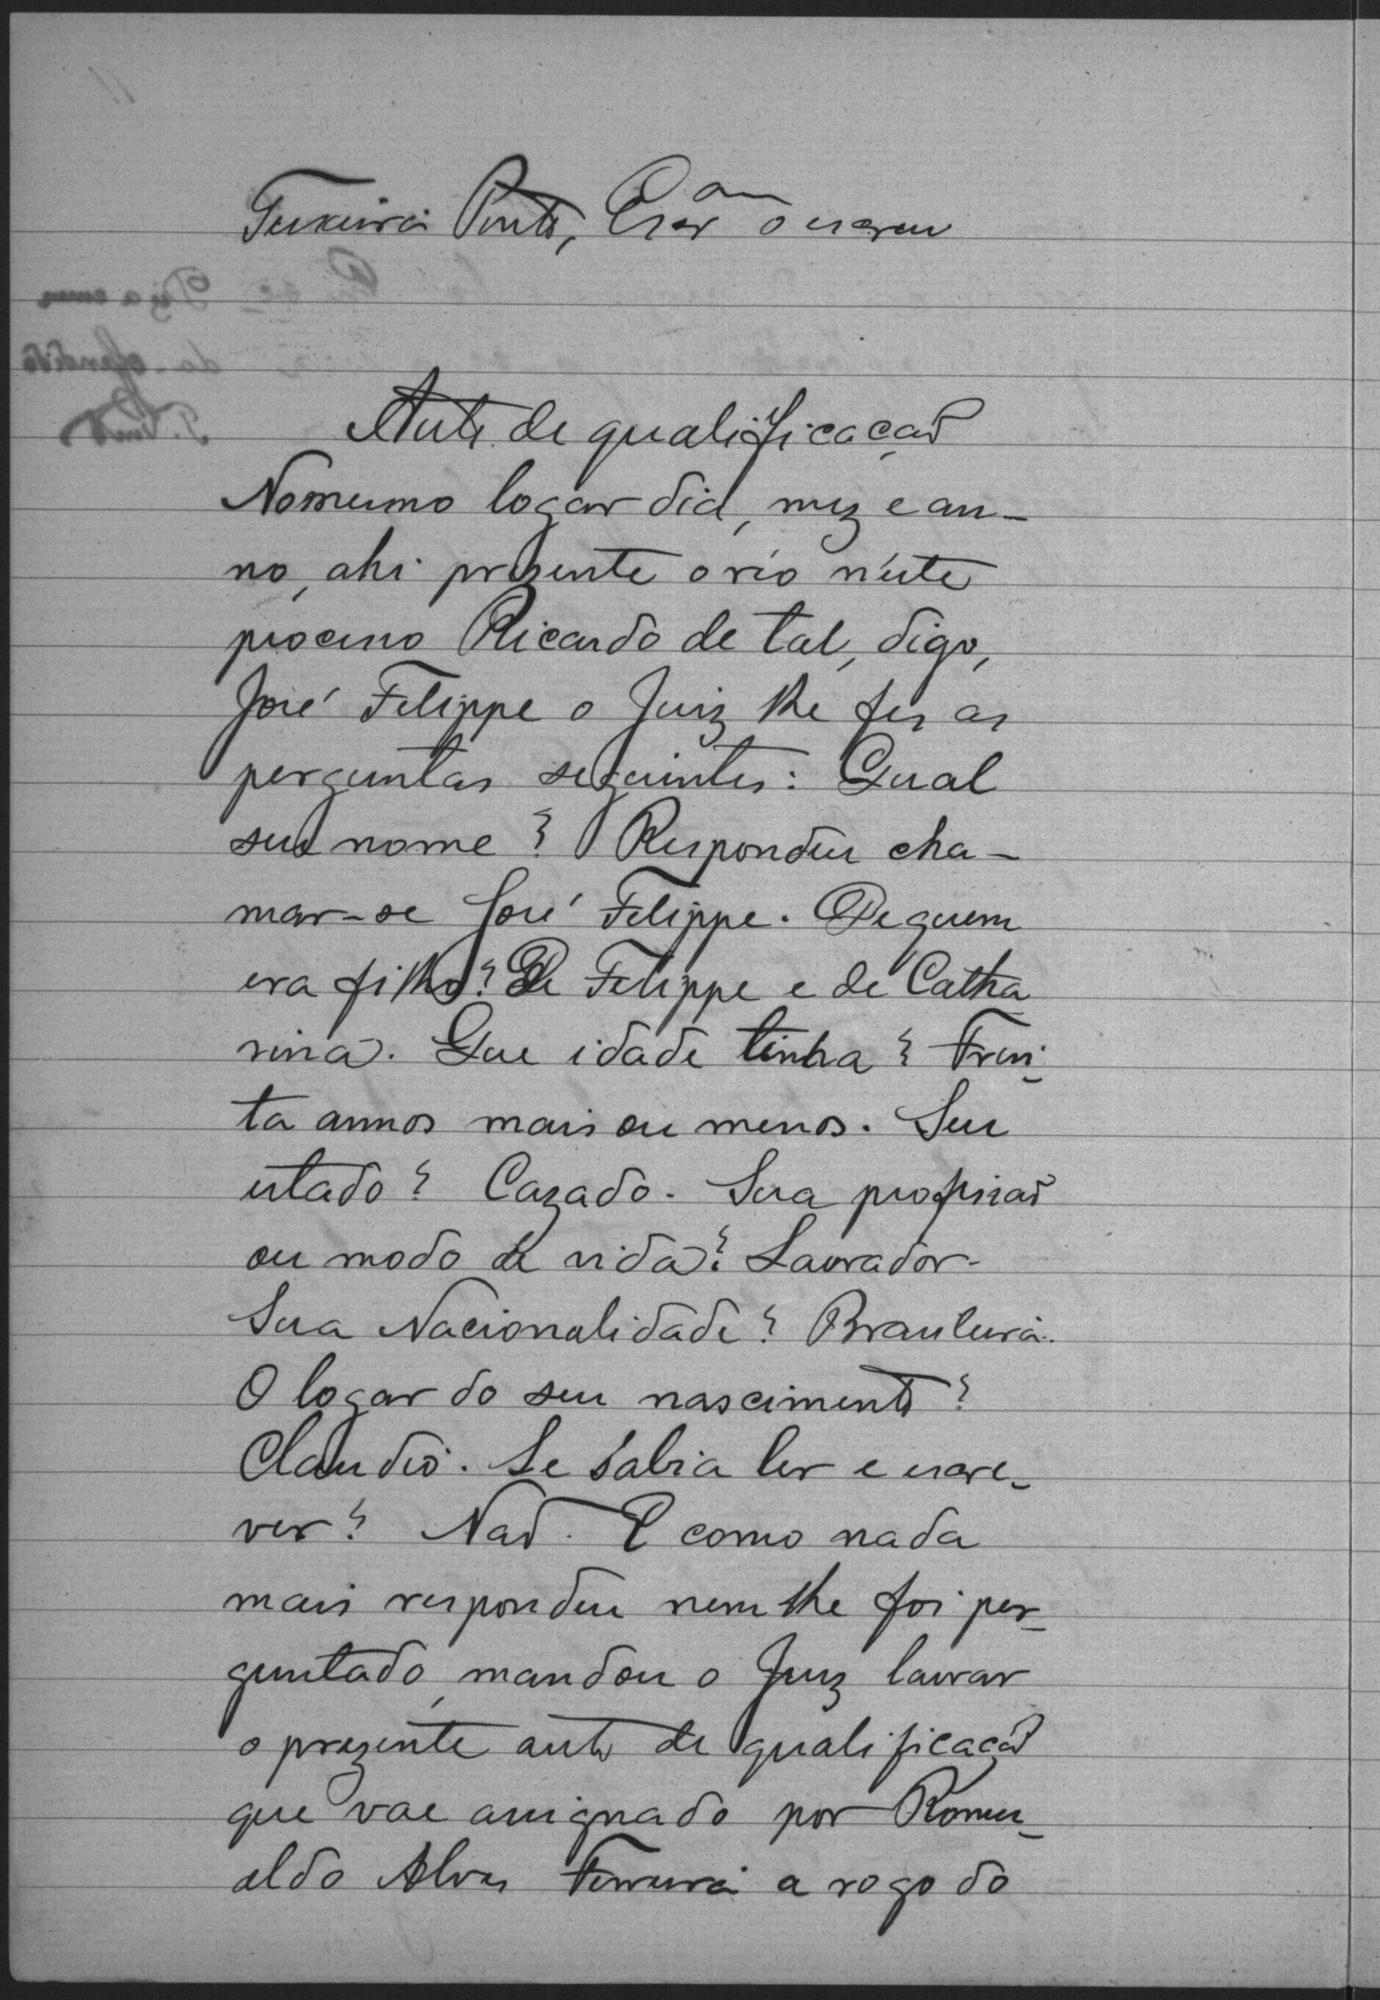 Teixeira Pinto, Escr.am o escrevi
Auto de qualificação
No mesmo logar dia, mez e an-
no, ahi prezente o réo n'este
processo Ricardo de tal, digo,
José Felippe o Juiz lhe fes as
perguntas seguintes: Qual
seu nome? Respondeu cha-
mar-se José Felippe. De quem
era filho? De Felippe e de Catha
rina. Que idade tinha? Trin-
ta annos mais ou menos. Seu
estado? Cazado. Sua profissão
ou modo de vida? Lavrador.
Sua Nacionalidade? Brasileira.
O logar do seu nascimento?
Claudio. Se sabia ler e escre-
ver? Não. E como nada
mais respondeu nem lhe foi per-
guntado, mandou o Juiz lavrar
o prezente auto de qualificação
que vae assignado por Romu-
aldo Alves Ferreira a rogo do